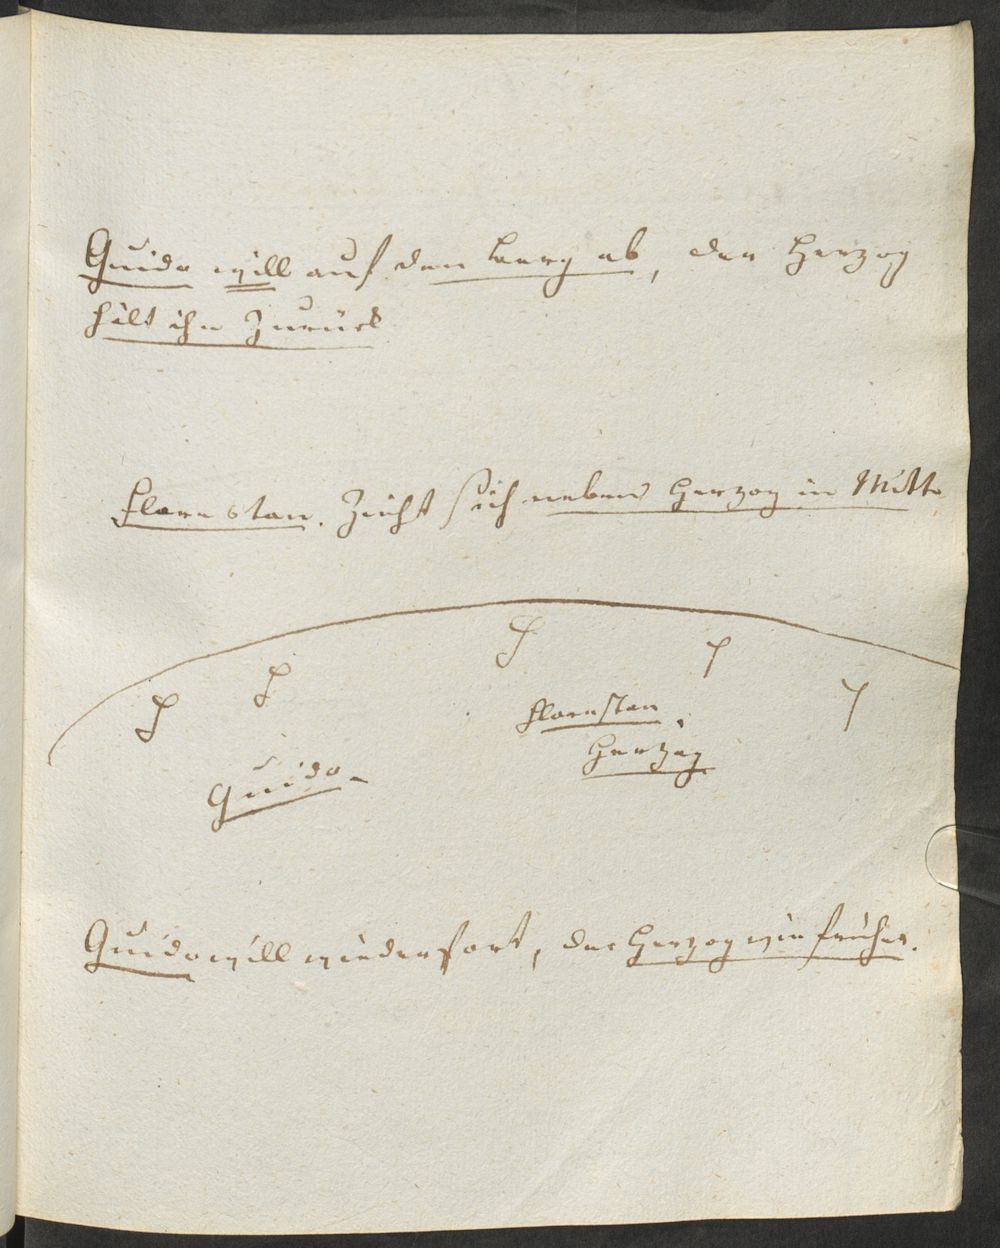 Guido will auf den Berg ab, der Herzog
hält ihn Zurück
Florestan. Zieht sich nebens Herzog in Mitte
Florestan.
Herzog
Guido
Guido will wieder fort, der Herzog wie früher.